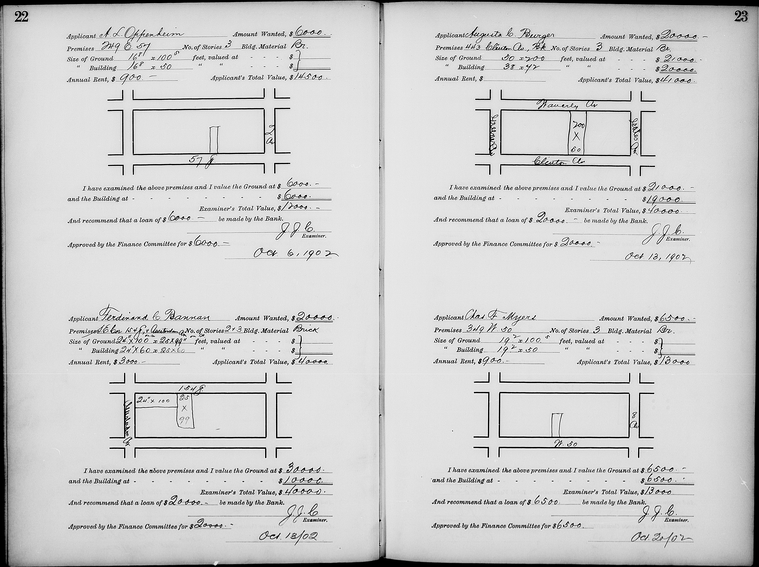 22
Applicant A L Oppenheim Amount Wanted, $ 6000
Premises 249 E 57 No. of Stories 3 Bldg. Material Br.
Size of Ground 16⁸ x 100⁵ feet, valued at - - - $
" Building 16⁸ x 50 " " - - - $
Annual Rent, $ 900 — Applicant's Total Value, $ 14500
2 Av
57
I have examined the above premises and I value the Ground at $ 6000. –
and the Building at - - - - - - - - $ 6000. –
Examiner's Total Value, $ 12000 –
And recommend that a loan of $ 6000 — be made by the Bank.
J. J. C
Examiner.
Approved by the Finance Committee for $ 6000 —
Oct 6, 1902
Applicant Ferdinand C Bannan Amount Wanted, $ 20000
Premises No. of Stories 2 & 3 Bldg. Material Brick
Size of Ground feet, valued at - - - $
" Building 24 x 60 " " - - - $
Annual Rent, $ 3000 — Applicant's Total Value, $ 40000
134
24⁹ x 100
25
X
99
I have examined the above premises and I value the Ground at $ 30000. –
and the Building at - - - - - - - - $ 10000
Examiner's Total Value, $ 40000. –
And recommend that a loan of $ 20000. – be made by the Bank.
J. J. C.
Examiner.
Approved by the Finance Committee for $ 20000. –
Oct 13/02
23
Applicant Augusta C. Burger Amount Wanted, $ 20000 –
Premises 443 Clinton Av, Bk No. of Stories 3 Bldg. Material Br.
Size of Ground 50 x 200 feet, valued at - - - $ 21000
" Building 38 x 42 " " - - - $ 20000
Annual Rent, $ Applicant's Total Value, $ 41000
Waverly Av
200
X
50
Clinton Av
I have examined the above premises and I value the Ground at $ 21000. –
and the Building at - - - - - - - - $ 19000
Examiner's Total Value, $ 40000. –
And recommend that a loan of $ 20000. – be made by the Bank.
J. J. C
Examiner.
Approved by the Finance Committee for $ 20000. –
Oct 13, 1902
Applicant Chas F. Myers Amount Wanted, $ 6500. –
Premises 349 W. 50 No. of Stories 3 Bldg. Material Br.
Size of Ground 19² x 100⁵ feet, valued at - - - $
" Building 19² x 50 " " - - - $
Annual Rent, $ 900. – Applicant's Total Value, $ 13000
8 Av
W. 50
I have examined the above premises and I value the Ground at $ 6500 –
and the Building at - - - - - - - - $ 6500. –
Examiner's Total Value, $ 13000
And recommend that a loan of $ 6500 be made by the Bank.
J. J. C
Examiner.
Approved by the Finance Committee for $ 6500.
Oct 20/02